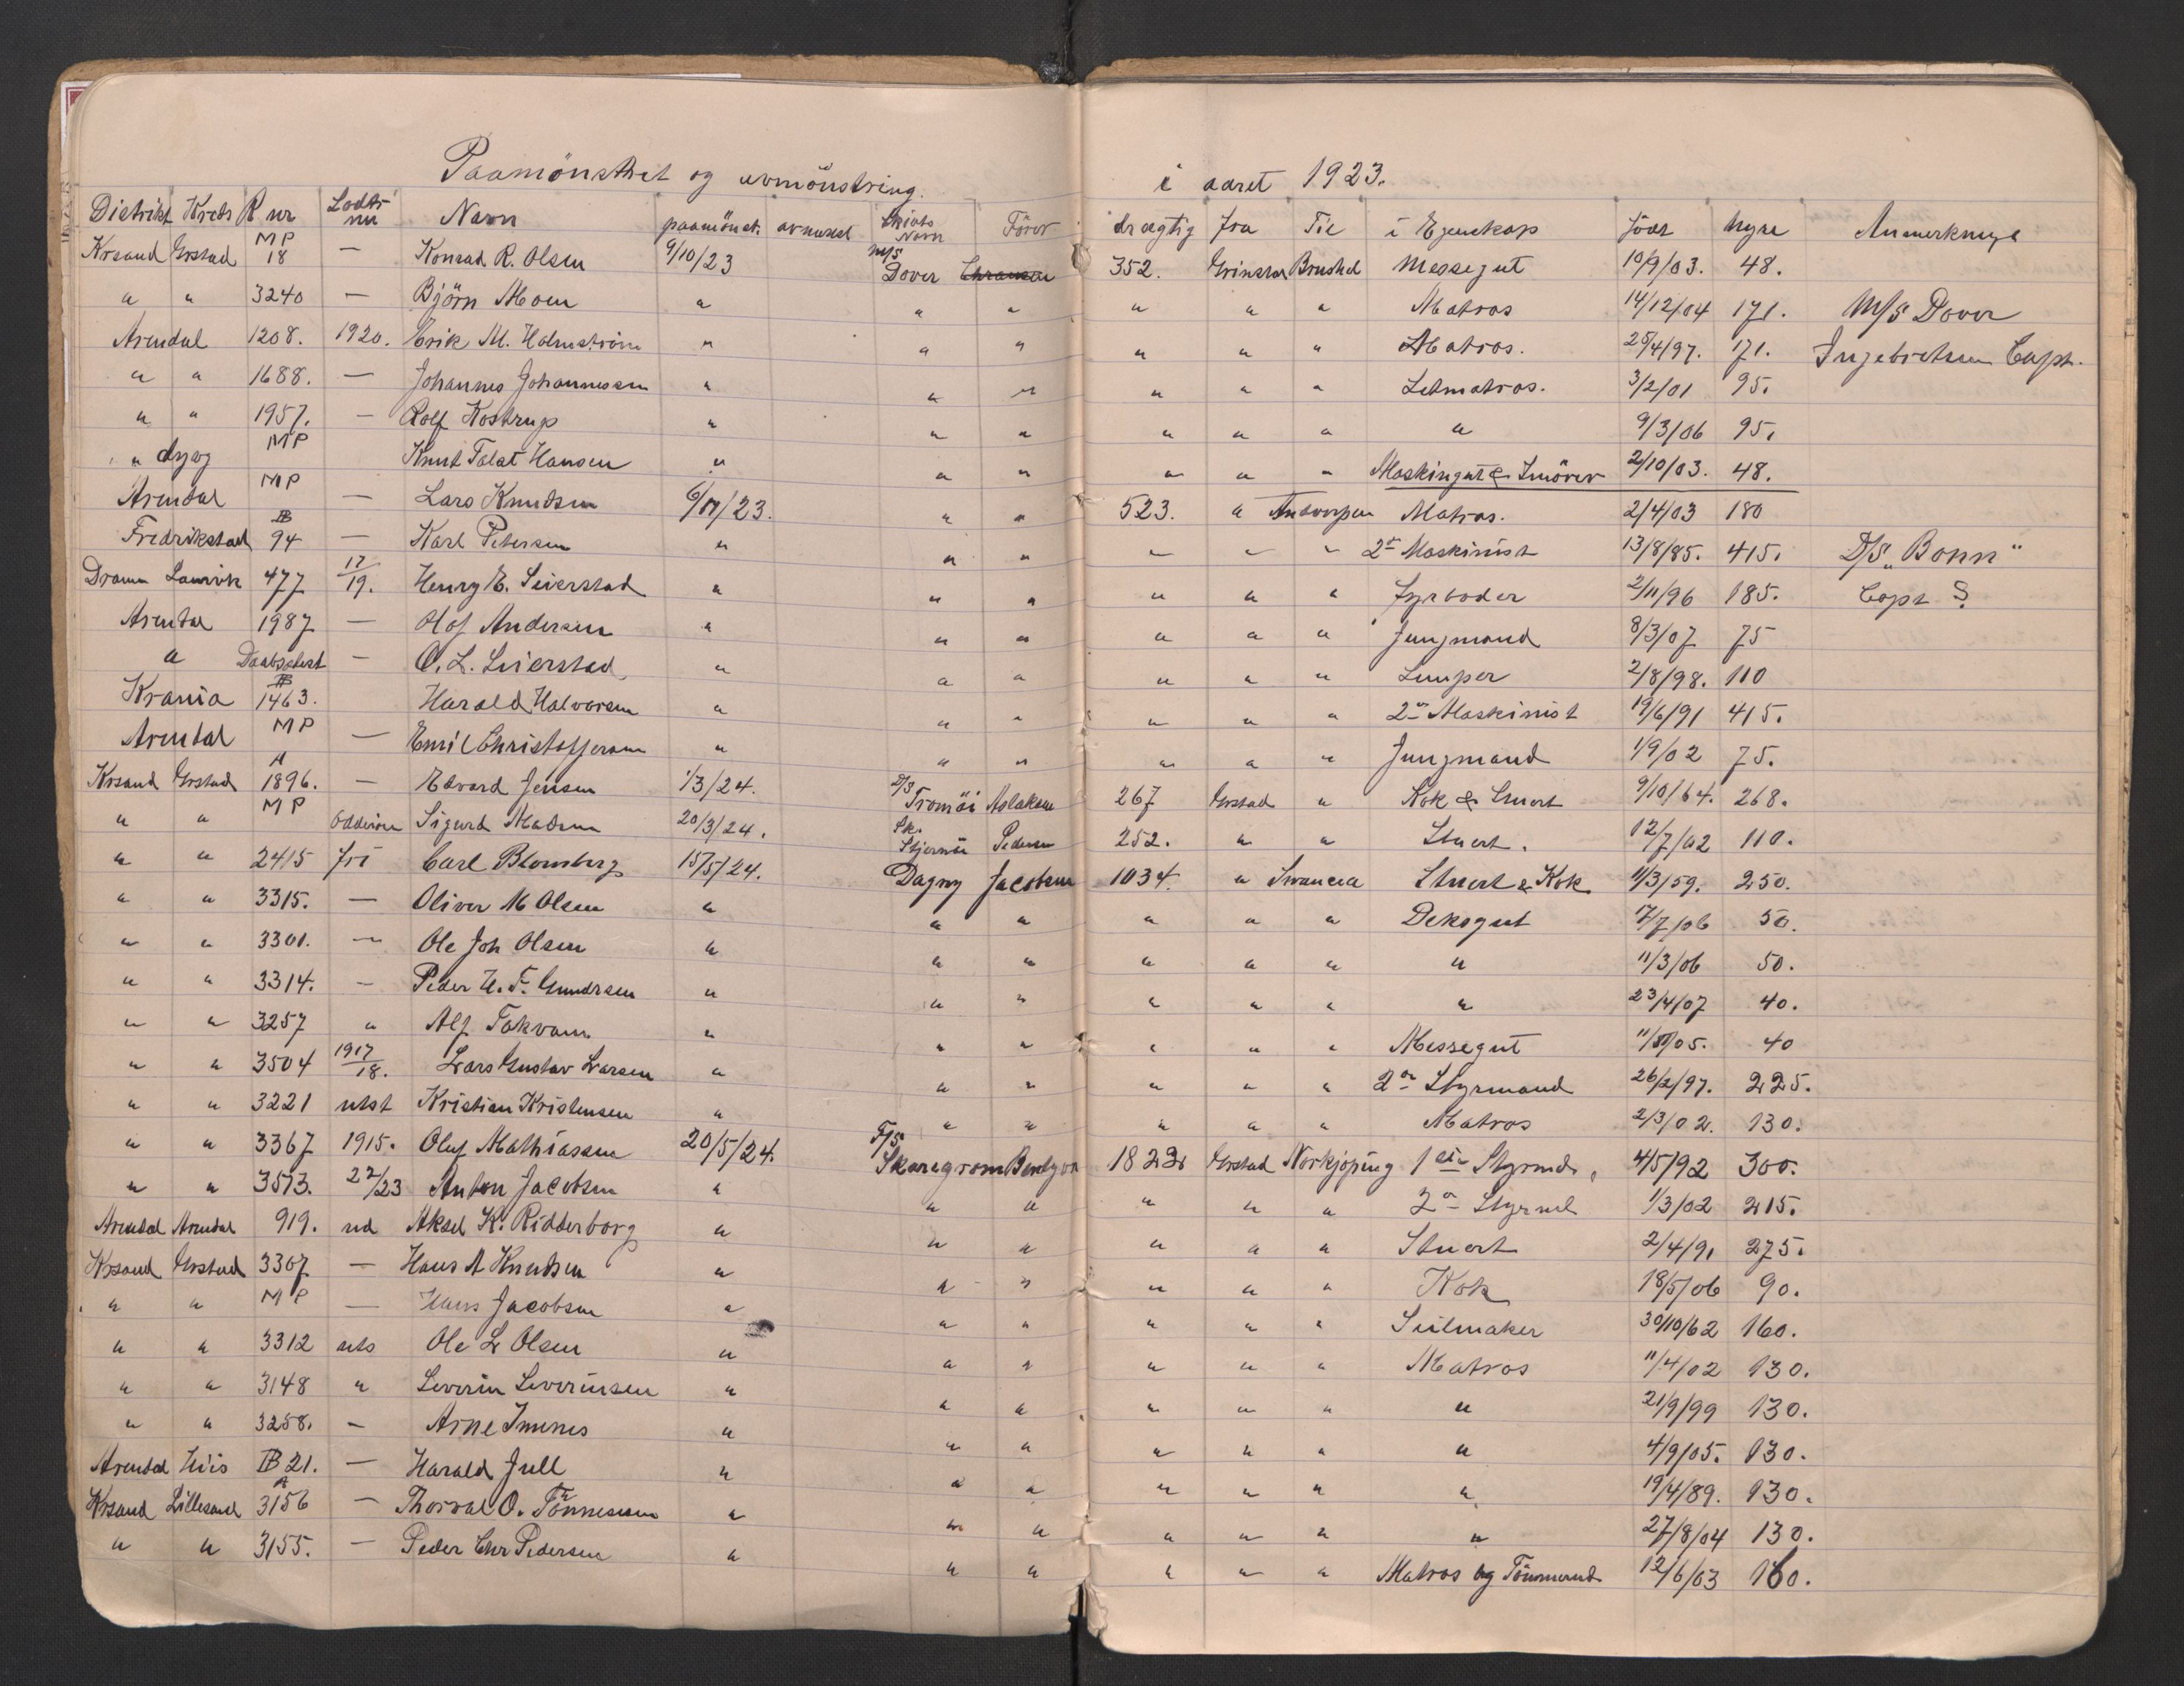 Paamönstret og avmönstring. i aaret 1923.
Distrikt Kreds R nr Lodtr nu Navn paamönst. avmönst Skibets Navn Förer drægtig fra Til i Egenskap föde hyre Anmerkninge
Krsand Grstad MP 18 — Konrad R. Olsen 9/10/23 M/S Dover 352. Grimstad Messegut 10/9/03. 48.
" " 3240 — Björn Moen " " " " " " Matros 14/12/04 171. M/S Dover
Arendal 1208. 1920. Erik M. Holmström " " " " " " Matros. 25/4/97. 171. Ingebretsen Capt.
" " 1688. — Johannes Johannessen " " " " " " Letmatros. 3/2/01 95.
" " 1957. — Rolf Kostrup " " " " " " " 9/3/06 95.
" dyvg MP Knut Talat Hansen " " " " " " Maskingut & Smörer 2/10/03. 48.
Arendal MP — Lars Knudsen 6/11/23. " " 523. " Antwerpen Matros. 2/4/03 180
Fredrikstad B 94 — Karl Petersen " " " " " " 2n Maskinist 13/8/85. 415. D/S „Bonn"
Dramm Laurvik 477 17/19. Henry E. Seierstad " " " " " " Fyrböder 2/11/96 185. Capt ?
Arendal 1987 — Olof Andersen " " " " " " Jungmand 8/3/07 75
" Daabsattest — O. L. Seierstad " " " " " " Lemper 2/8/98. 110
Krania B 1463. Harald Halvorsen " " " " " " 2n Maskinist 19/6/91 415.
Arendal MP — Emil Christoffersen " " " " " " Jungmand 1/9/02 75.
Krsand Grstad A 1896. — Edvard Jensen 1/3/24. D/S Tromöi Aslaksen 267 Grstad " Kok & Stuert 9/10/64. 268.
" " MP Oddernes Sigurd Madsen 20/3/24. Sk. Stjernöi Pedersen 252. " " Stuert. 12/7/02 110.
" " 2415 fri Carl Blomberg 15/5/24. Dagny Jacobsen 1034. " Swancea Stuert & Kok 11/3/59. 250.
" " 3315. — Oliver M Olsen " " " " " " Deksgut 17/7/06 50.
" " 3301. — Ole Joh Olsen " " " " " " " 11/3/06 50.
" " 3314. — Peder U. F. Gundersen " " " " " " " 23/4/07 40.
" " 3257 " Alf Takvam " " " " " " Messegut 05. 40
" " 3504 1917/18. Lars Gustav Larsen " " " " " " 2n Styrmand 26/2/97. 225.
" " 3221 utst Kristian Kristensen " " " " " " Matros 2/3/02. 130.
" " 3367 1915. Oluf Mathiassen 20/5/24. F/S Skaregrom Bentzon 1822 Grstad Norkjöping 1ste Styrmd. 4/5/92 300.
" " 3513. 22/23 Anton Jacobsen " " " " " " 2n Styrmd 1/3/02 215.
Arendal Arendal 919. ud Aksel K. Ridderborg " " " " " " Stuert 2/4/91 275.
Krsand Grstad 3307 — Hans A Knudsen " " " " " " Kok 18/5/06 90.
" " MP — Hans Jacobsen " " " " " " Seilmaker 30/10/62 160.
" " 3312 uts Ole L Olsen " " " " " " Matros 11/4/02 130.
" " 3148 " Severin Severinsen " " " " " " " 21/9/99 130.
" " 3258. — Arne Imenes " " " " " " " 4/9/05. 130.
Arendal Hiis B 21. — Harald Jull " " " " " " " 19/4/89. 130.
Krsand Lillesand A 3156 — Thorval O. Tönnessen " " " " " " " 27/8/04 130.
" " 3155. — Peder Chr Pedersen " " " " " " Matros og Tömmermd 12/6/03 160.